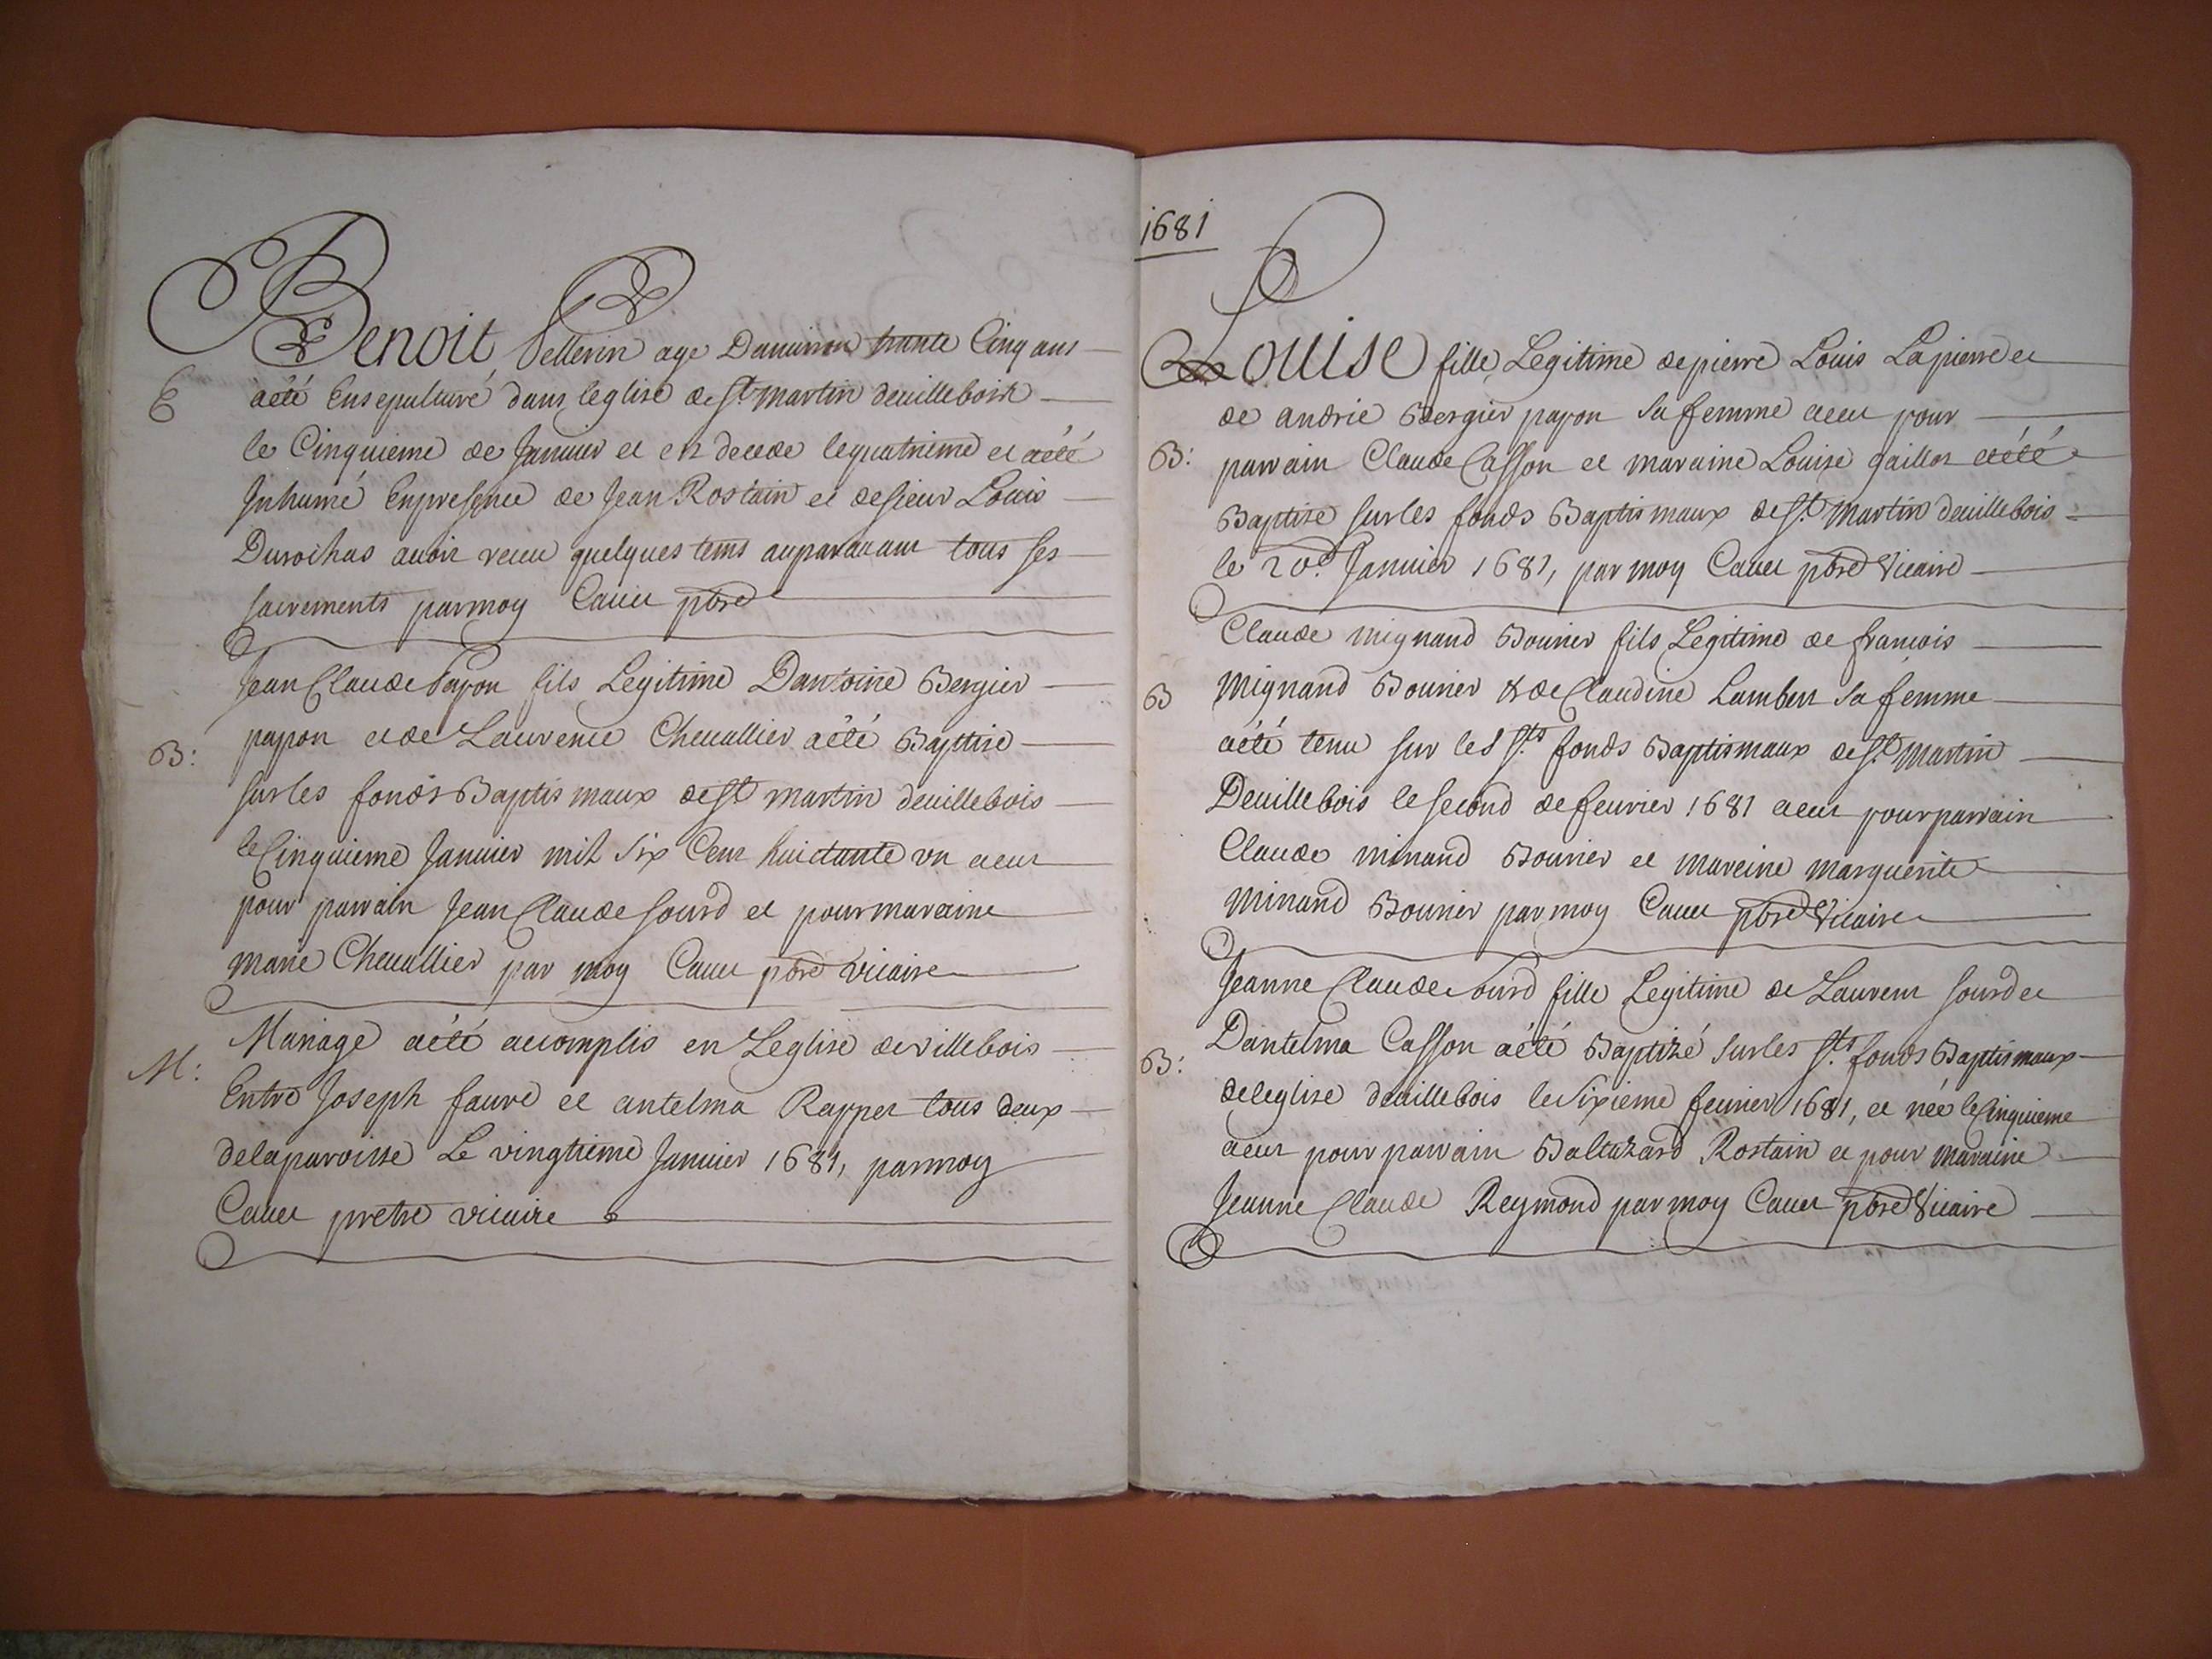 Benoit Pellerin age Dauiron trante Cinq ans
E
aété Ensepulturé dans leglise de St martin deuillebois
le Cinquieme de Januier et est decede lequatrieme et aété
Inhumé Enpresence de Jean Rostain et desieur Louis
Durochas auoir receu quelques tems auparauant tous ses
sacrements parmoy Cauet pbre
Jean Claude Papon fils Legitime Dantoine Bergier
B:
papon et de Laurence Cheuallier aété Baptise
sur les fonds Baptismaux de St martin deuillebois
le Cinquieme Januier mil Six Cent huictante vn aeut
pour parrain Jean Claude Sourd et pour maraine
marie Cheuallier par moy Cauet pbre vicaire
Mariage aété accomplis en Leglise de villebois
M:
Entre Joseph faure et antelma Rappet tous deux
delaparoisse Le vingtieme Januier 1681, parmoy
Cauet pretre vicaire
1681
Louise fille Legitime depierre Louis Lapierre et
de andrie Bergier papon Sa femme aeut pour
B:
parrain Claude Casson et maraine Louise gaillot etété
Baptise sur les fonds Baptismaux de St. martin deuillebois
le 20e Januier 1681, par moy Cauet pbre Vicaire
Claude mignand Bourier fils Legitime de francois
B
Mignand Bourier & de Claudine Lambert Sa femme
aété tenu sur les Sts fonds Baptismaux de St. Martin
Deuillebois le second de feurier 1681 aeut pour parrain
Claude minand Bourier et mareine marguerite
Minand Bourier par moy Cauet pbre Vicaire
Jeanne Claude Sourd fille Legitime de Laurent Sourd et
Dantelma Casson aété Baptizé Sur les Sts. fonds Baptismaux
B:
deleglise deuillebois le Sixieme feurier 1681, et née le Cinquieme
aeut pour parrain Baltazard Rostain et pour maraine
Jeanne Claude Reymond par moy Cauet pbre Vicaire